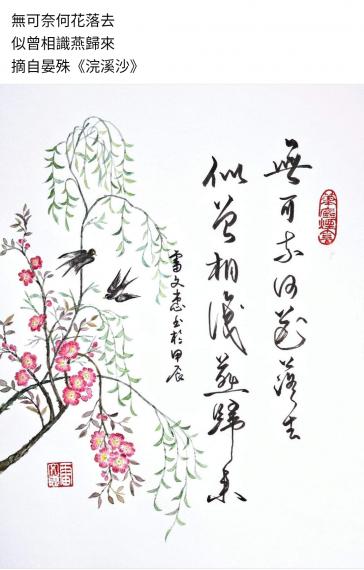 無可奈何花落去
似曾相識燕歸來
摘自晏殊《浣溪沙》
無可奈何花落去
似曾相識燕歸來
雷文惠書於甲辰